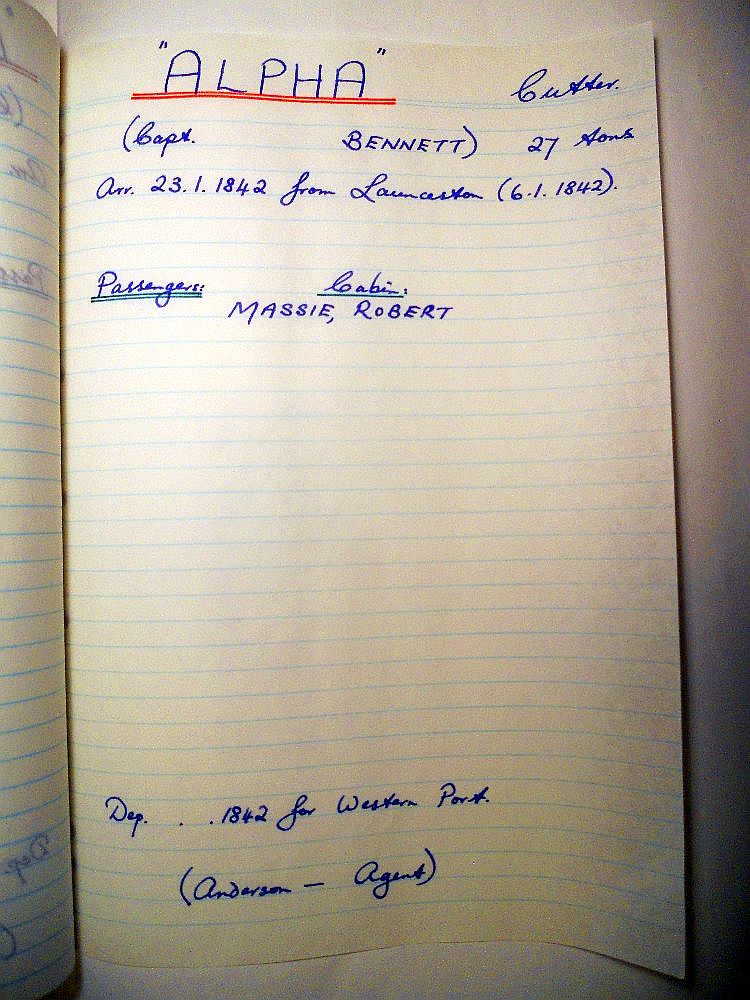 "ALPHA" Cutter.
(Capt. BENNETT) 27 tons
Arr. 23.1.1842 from Launceston (6.1.1842).
Passengers: Cabin:
MASSIE, ROBERT
Dep. . . 1842 for Western Port.
(Anderson — Agent)
Dep